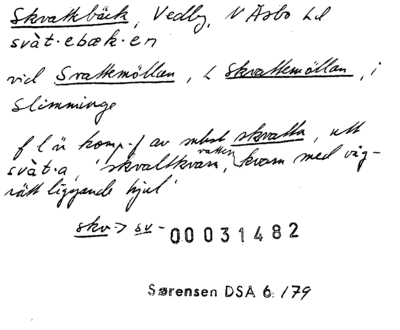 Skvattebäck, Vedby, N Åsbo hd
svàt·ebæk·en
vid Svattemöllan, L Skvattemöllan, i
Slimminge
f l ü komp-f av subst skvatta, utt
svàt·a, 'skvaltkvarn, vattenkvarn med våg-
rätt liggande hjul'
skv-> sv-
00031482
Sørensen DSA 6:/79